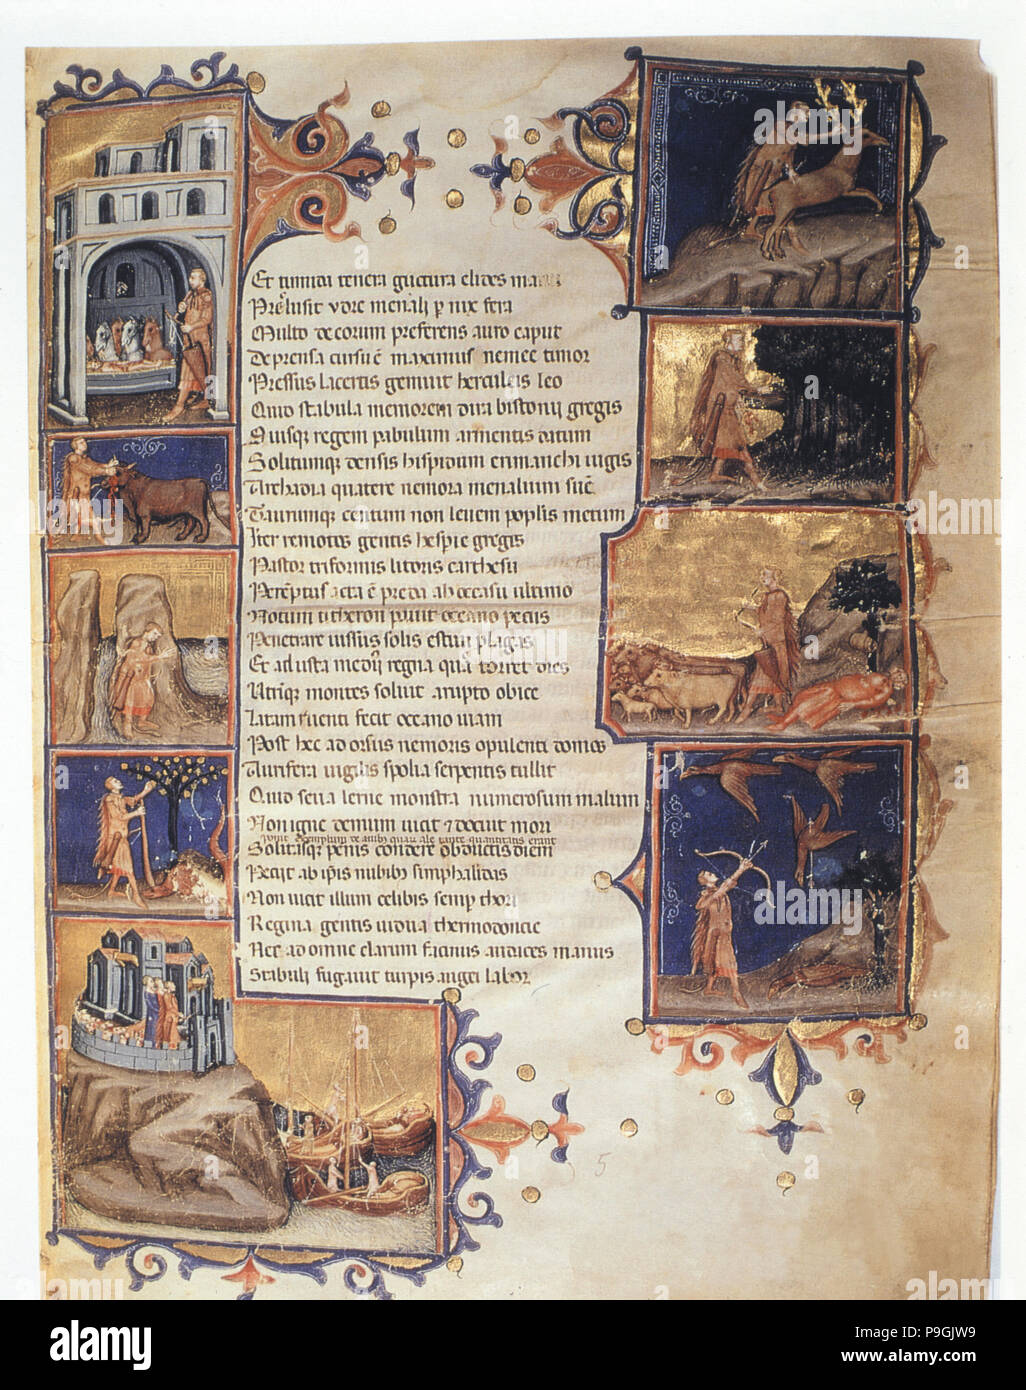 Et timuit tenera guttura elides manu
Prelusit ydre menali p nix fera
Multo decorum preferens auro caput
Deprensa cursu ē maximus nemee timor
Pressus lacertis gemuit herculeis leo
Quid stabula memorem dira bistonij gregis
Suisque regem pabulum armentis datum
Solitumque densis hispidum erimanthi iugis
Archadia quatere nemora menalium suē
Taurumque centum non leuem poplis metum
Iter remotos gentis hespie gregis
Pastor triformis litoris carthesii
Peremptus acta ē preda ab occasu ultimo
Notum citheron pauit oceano pecus
Penetrare iussus solis estiui plagas
Et adusta mediū regna quā torret dies
Utrimque montes soluit arupto obice
Latam ruenti fecit oceano uiam
Post hec adorsus nemoris opulenti domos
Aurifera uigilis spolia serpentis tullit
Quid seua lerne monstra numerosum malum
Non igne demum uicit & docuit mori
Solitasque penis condere obductis diem
Petijt ab ipsis nubibus stimphalidas
Non uicit illum celibis semp thori
Regina gentis uidua thermodoncie
Nec ad omne clarum facinus audaces manus
Stabuli fugauit turpis augei labor
5
alamy
alamy
Image ID: P9GJW9
www.alamy.com